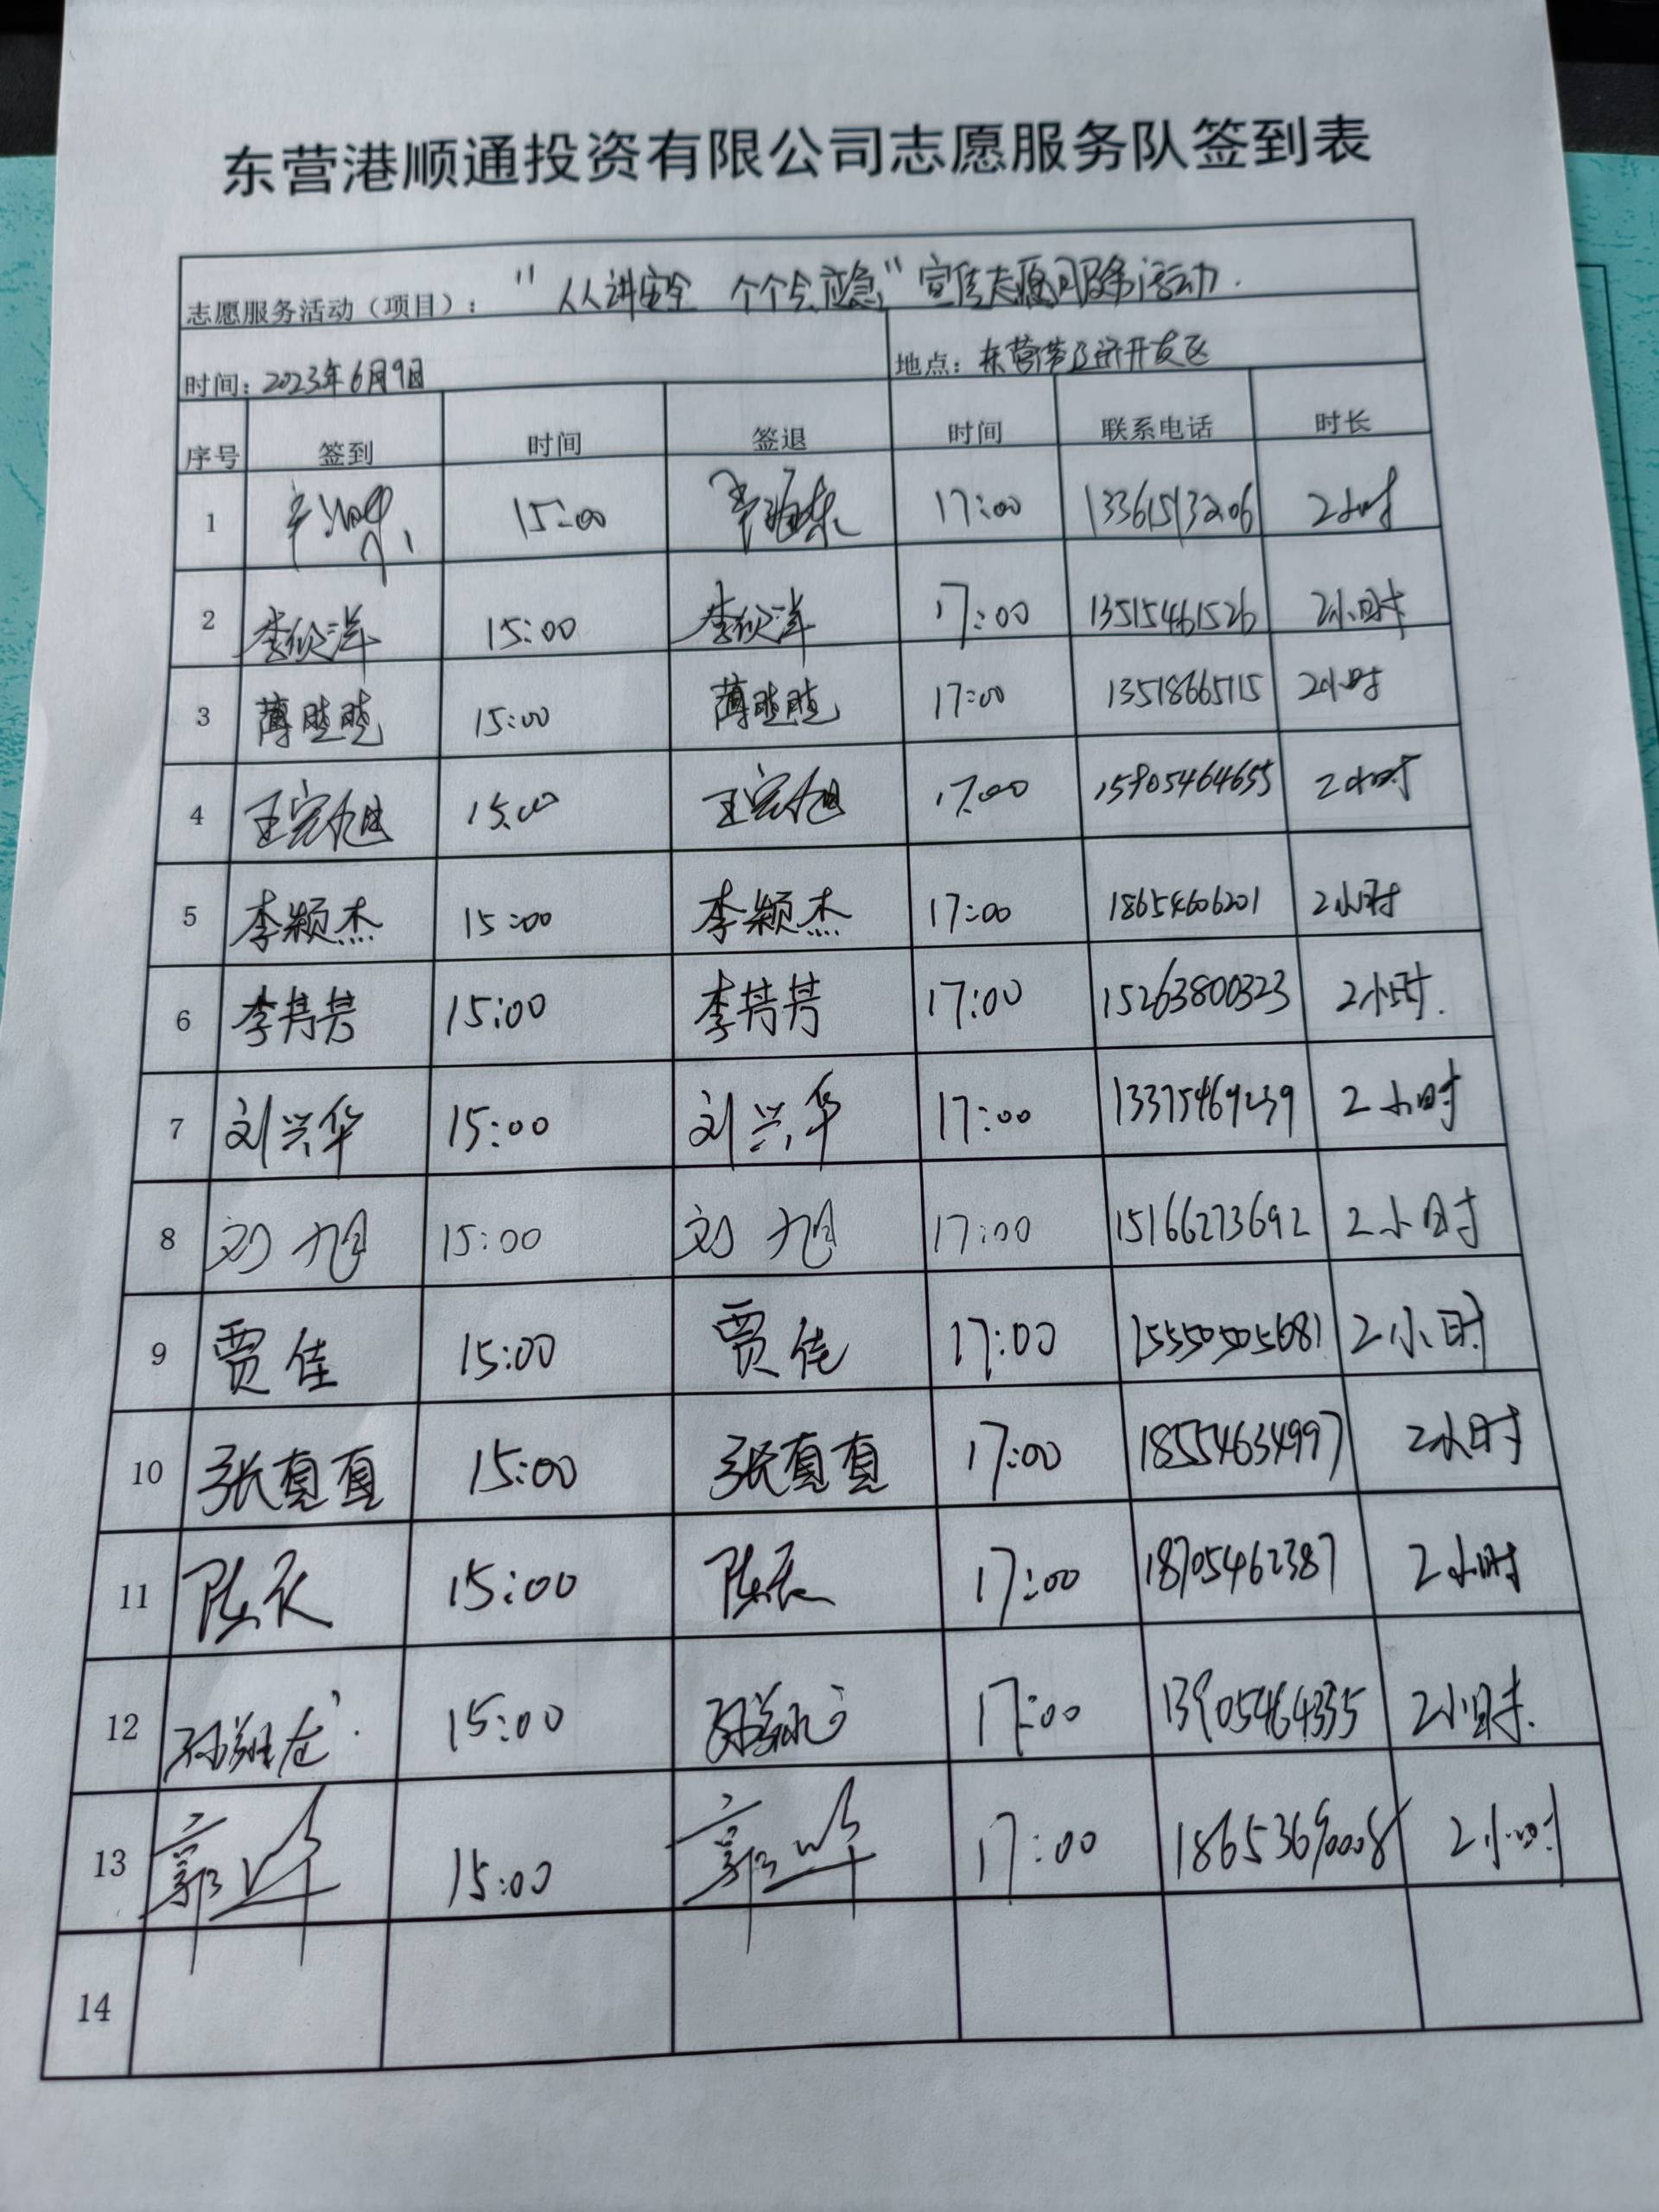 东营港顺通投资有限公司志愿服务队签到表
志愿服务活动（项目）："人人讲安全 个个会应急"宣传志愿服务活动.
时间：2023年6月9日 地点：东营港经济开发区
序号 签到 时间 签退 时间 联系电话 时长
1 15:00 17:00 13361513206 2小时
2 李欣洋 15:00 李欣洋 17:00 13515461526 2小时
3 薄晓晓 15:00 薄晓晓 17:00 13518665715 2小时
4 王宗旭 15:00 王宗旭 17:00 15905464655 2小时
5 李颖杰 15:00 李颖杰 17:00 18654606201 2小时
6 李芳芳 15:00 李芳芳 17:00 15263800323 2小时.
7 刘兴华 15:00 刘兴华 17:00 13375469239 2小时
8 刘旭 15:00 刘旭 17:00 15166273692 2小时
9 贾佳 15:00 贾佳 17:00 15550505681 2小时
10 张真真 15:00 张真真 17:00 18554634997 2小时
11 陈辰 15:00 陈辰 17:00 18705462387 2小时
12 15:00 17:00 13905464335 2小时.
13 15:00 17:00 18653690008 2小时
14